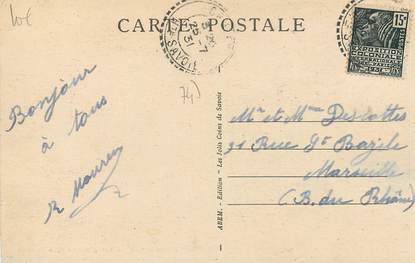 10€
CARTE POSTALE
15c
EXPOSITION
COLONIALE
INTERNATIONALE
Hte SAVOIE
25-7
31
74)
Bonjour
à tous
Mr et Mme Deslottes
91 Rue St Bazile
Marseille
(B. du Rhône)
ABEM. - Edition - Les Jolis Coins de Savoie
1